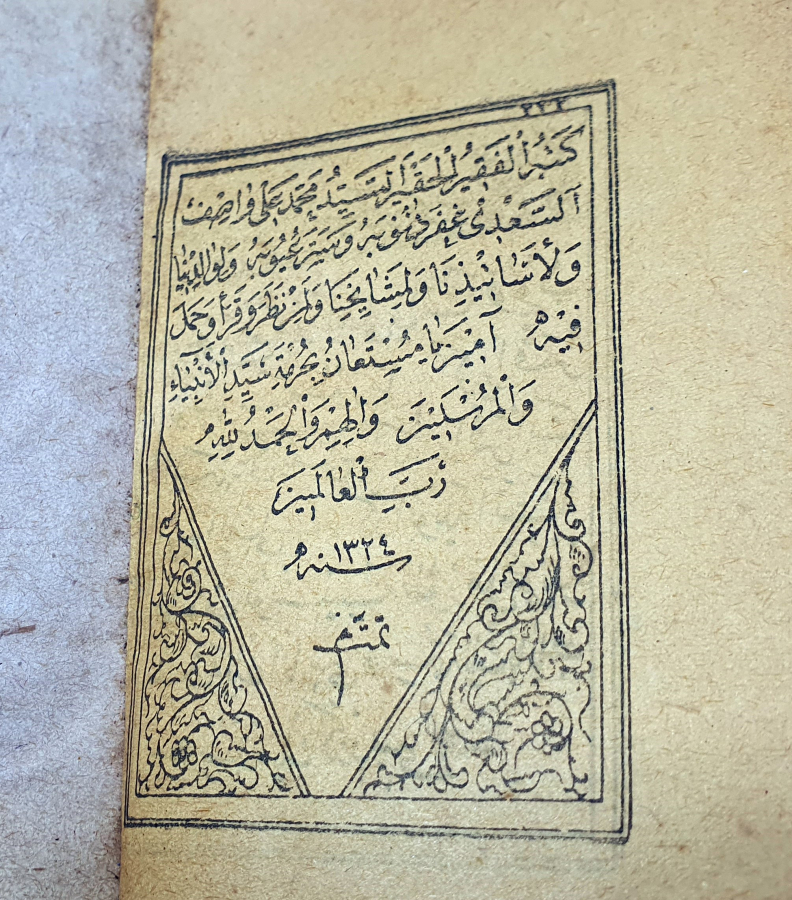 ٢٣٢
كَتَبَهُ الْفَقِيرُ الْحَقِيرُ السَّيِّدُ مُحَمَّد عَلِى وَاصِفْ
اَلسَّعْدِىْ غُفِرَ ذُنُوبَهُ وَسُتِرَ عُيُوبَهُ وَلِوَالِدِيْنَا
وَلِأَسَاتِيذِنَا وَلِمَشَايِخِنَا وَلِمَنْ نَظَرَ وَقَرَأَ وَحَمَلَ
فِيْهِ آمِيْنَ يَا مُسْتَعَانُ بِحُرْمَةِ سَيِّدِ الْأَنْبِيَاءِ
وَالْمُرْسَلِيْنَ وَآلِهِمْ وَالْحَمْدُ لِلّٰهِ
رَبِّ الْعَالَمِينَ
سنه ١٣٢٤
تمّت